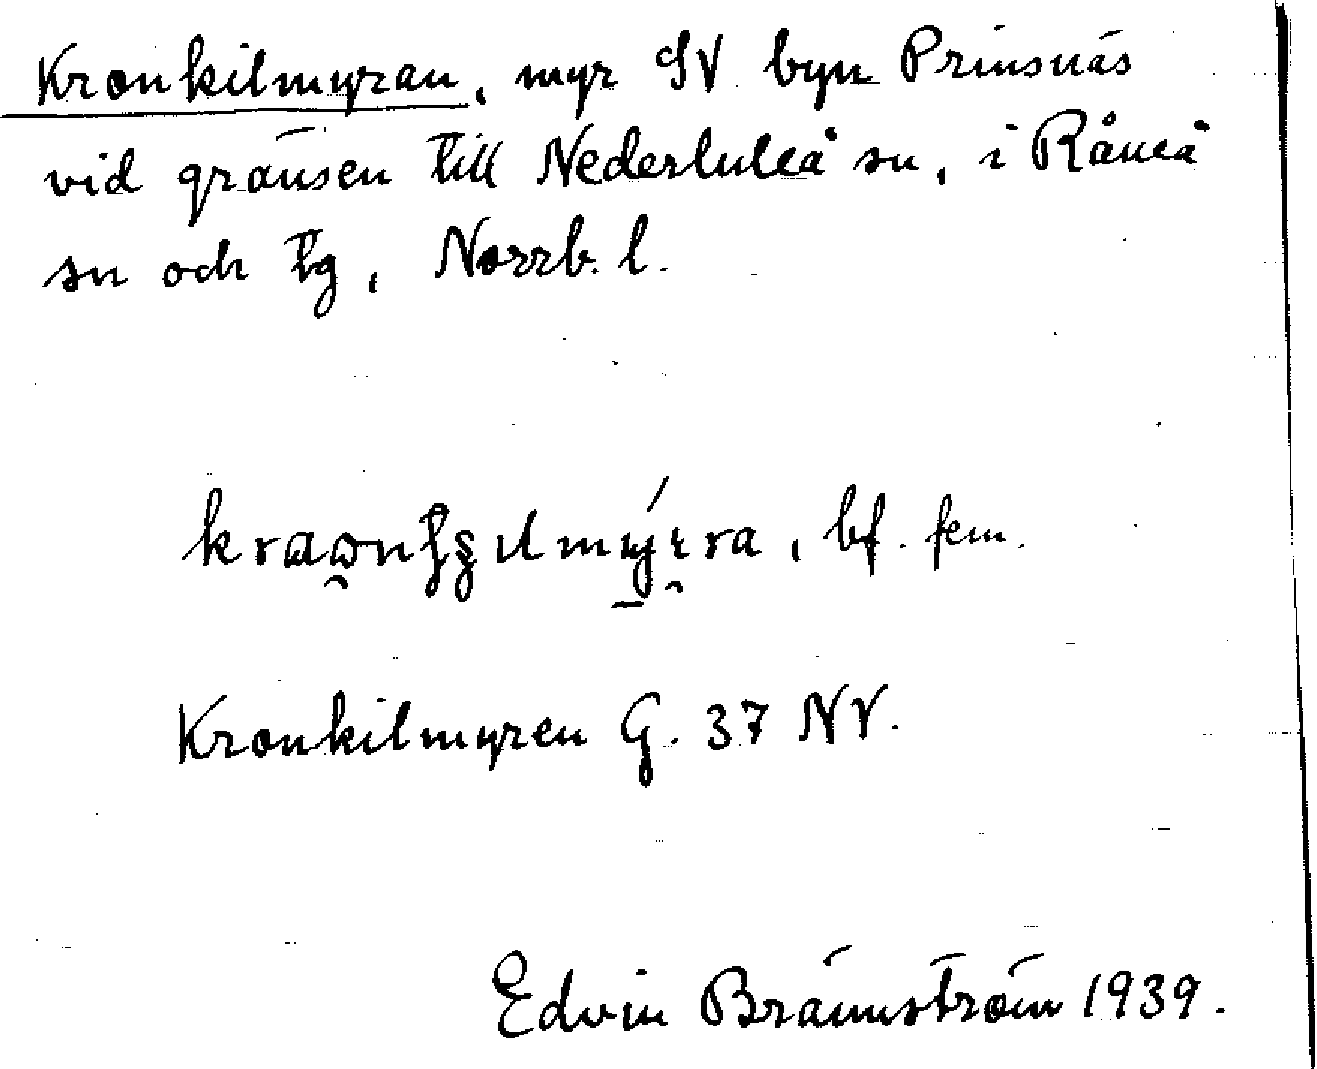 Kronkilmyran, myr SV byn Prinsnäs
vid gränsen till Nederluleå sn, i Råneå
sn och tg, Norrb. l.
, bf. fem.
Kronkilmyren G. 37 NV.
Edvin Brännström 1939.